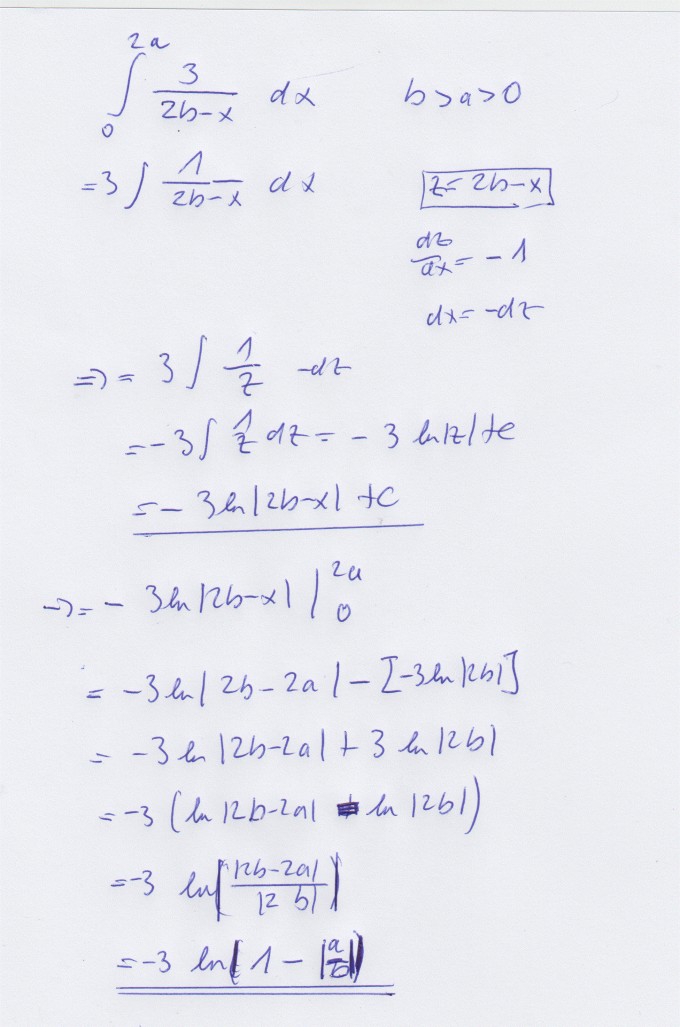 ∫₀^2a 3/(2b-x) dx b>a>0
=3 ∫ 1/(2b-x) dx z=2b-x
dz/dx = -1
dx=-dz
=> = 3 ∫ 1/z -dz
=-3 ∫ 1/z dz = -3 ln|z|+c
=-3 ln|2b-x| +c
-> = -3 ln|2b-x| |₀^2a
= -3 ln|2b-2a| - [-3 ln|2b|]
= -3 ln|2b-2a| + 3 ln|2b|
= -3 (ln|2b-2a| - ln|2b|)
=-3 ln(|2b-2a|/|2b|)
=-3 ln(1-|a/b|)